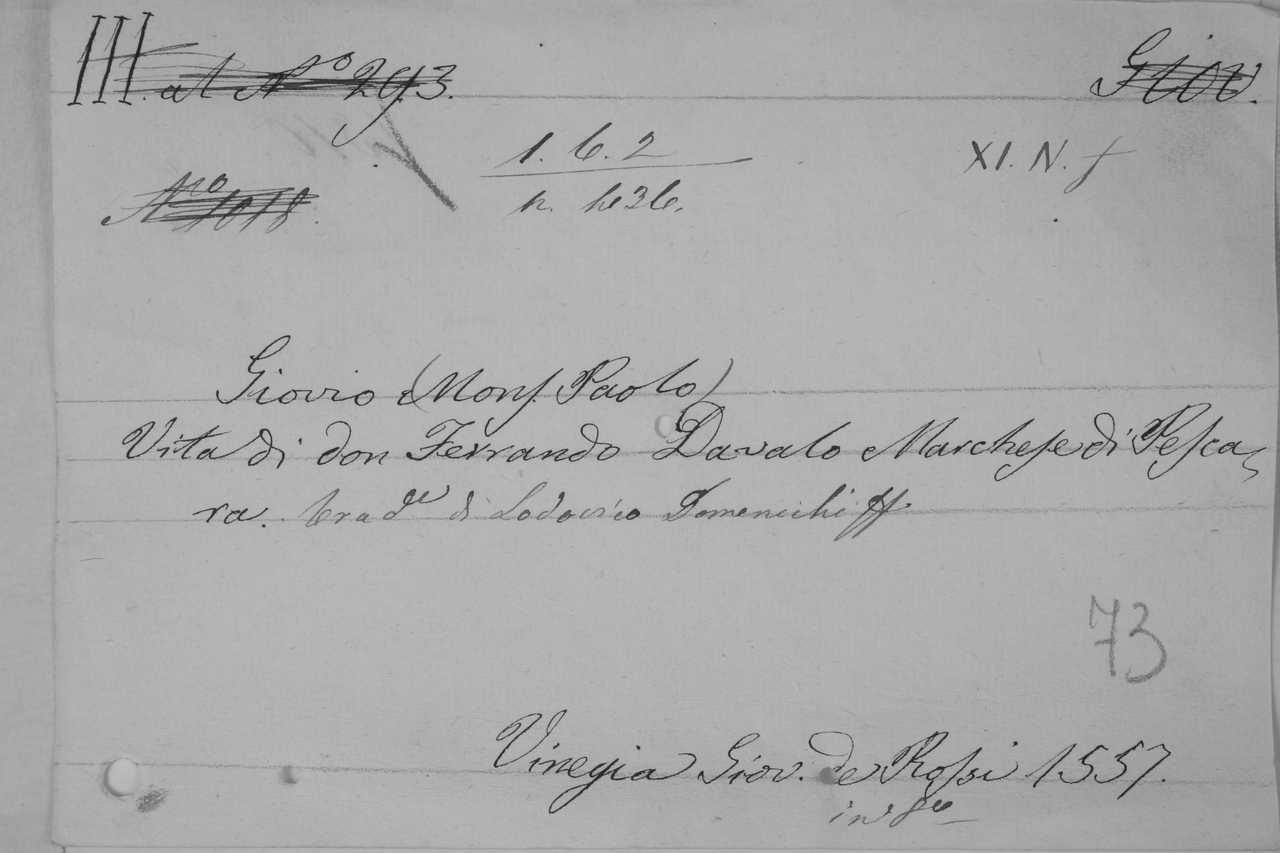 III. al Nº 293. Giov.
1. 6. 2 XI. N. f
Nº 1018. n. 1636.
Giovio (Monſ. Paolo)
Vita di don Ferrando Davalo Marcheſe di Peſca,
ra. trad.e di Lodovico Domenichi ff.
73
Vinegia Giov. de Roſsi 1557.
in 8vo